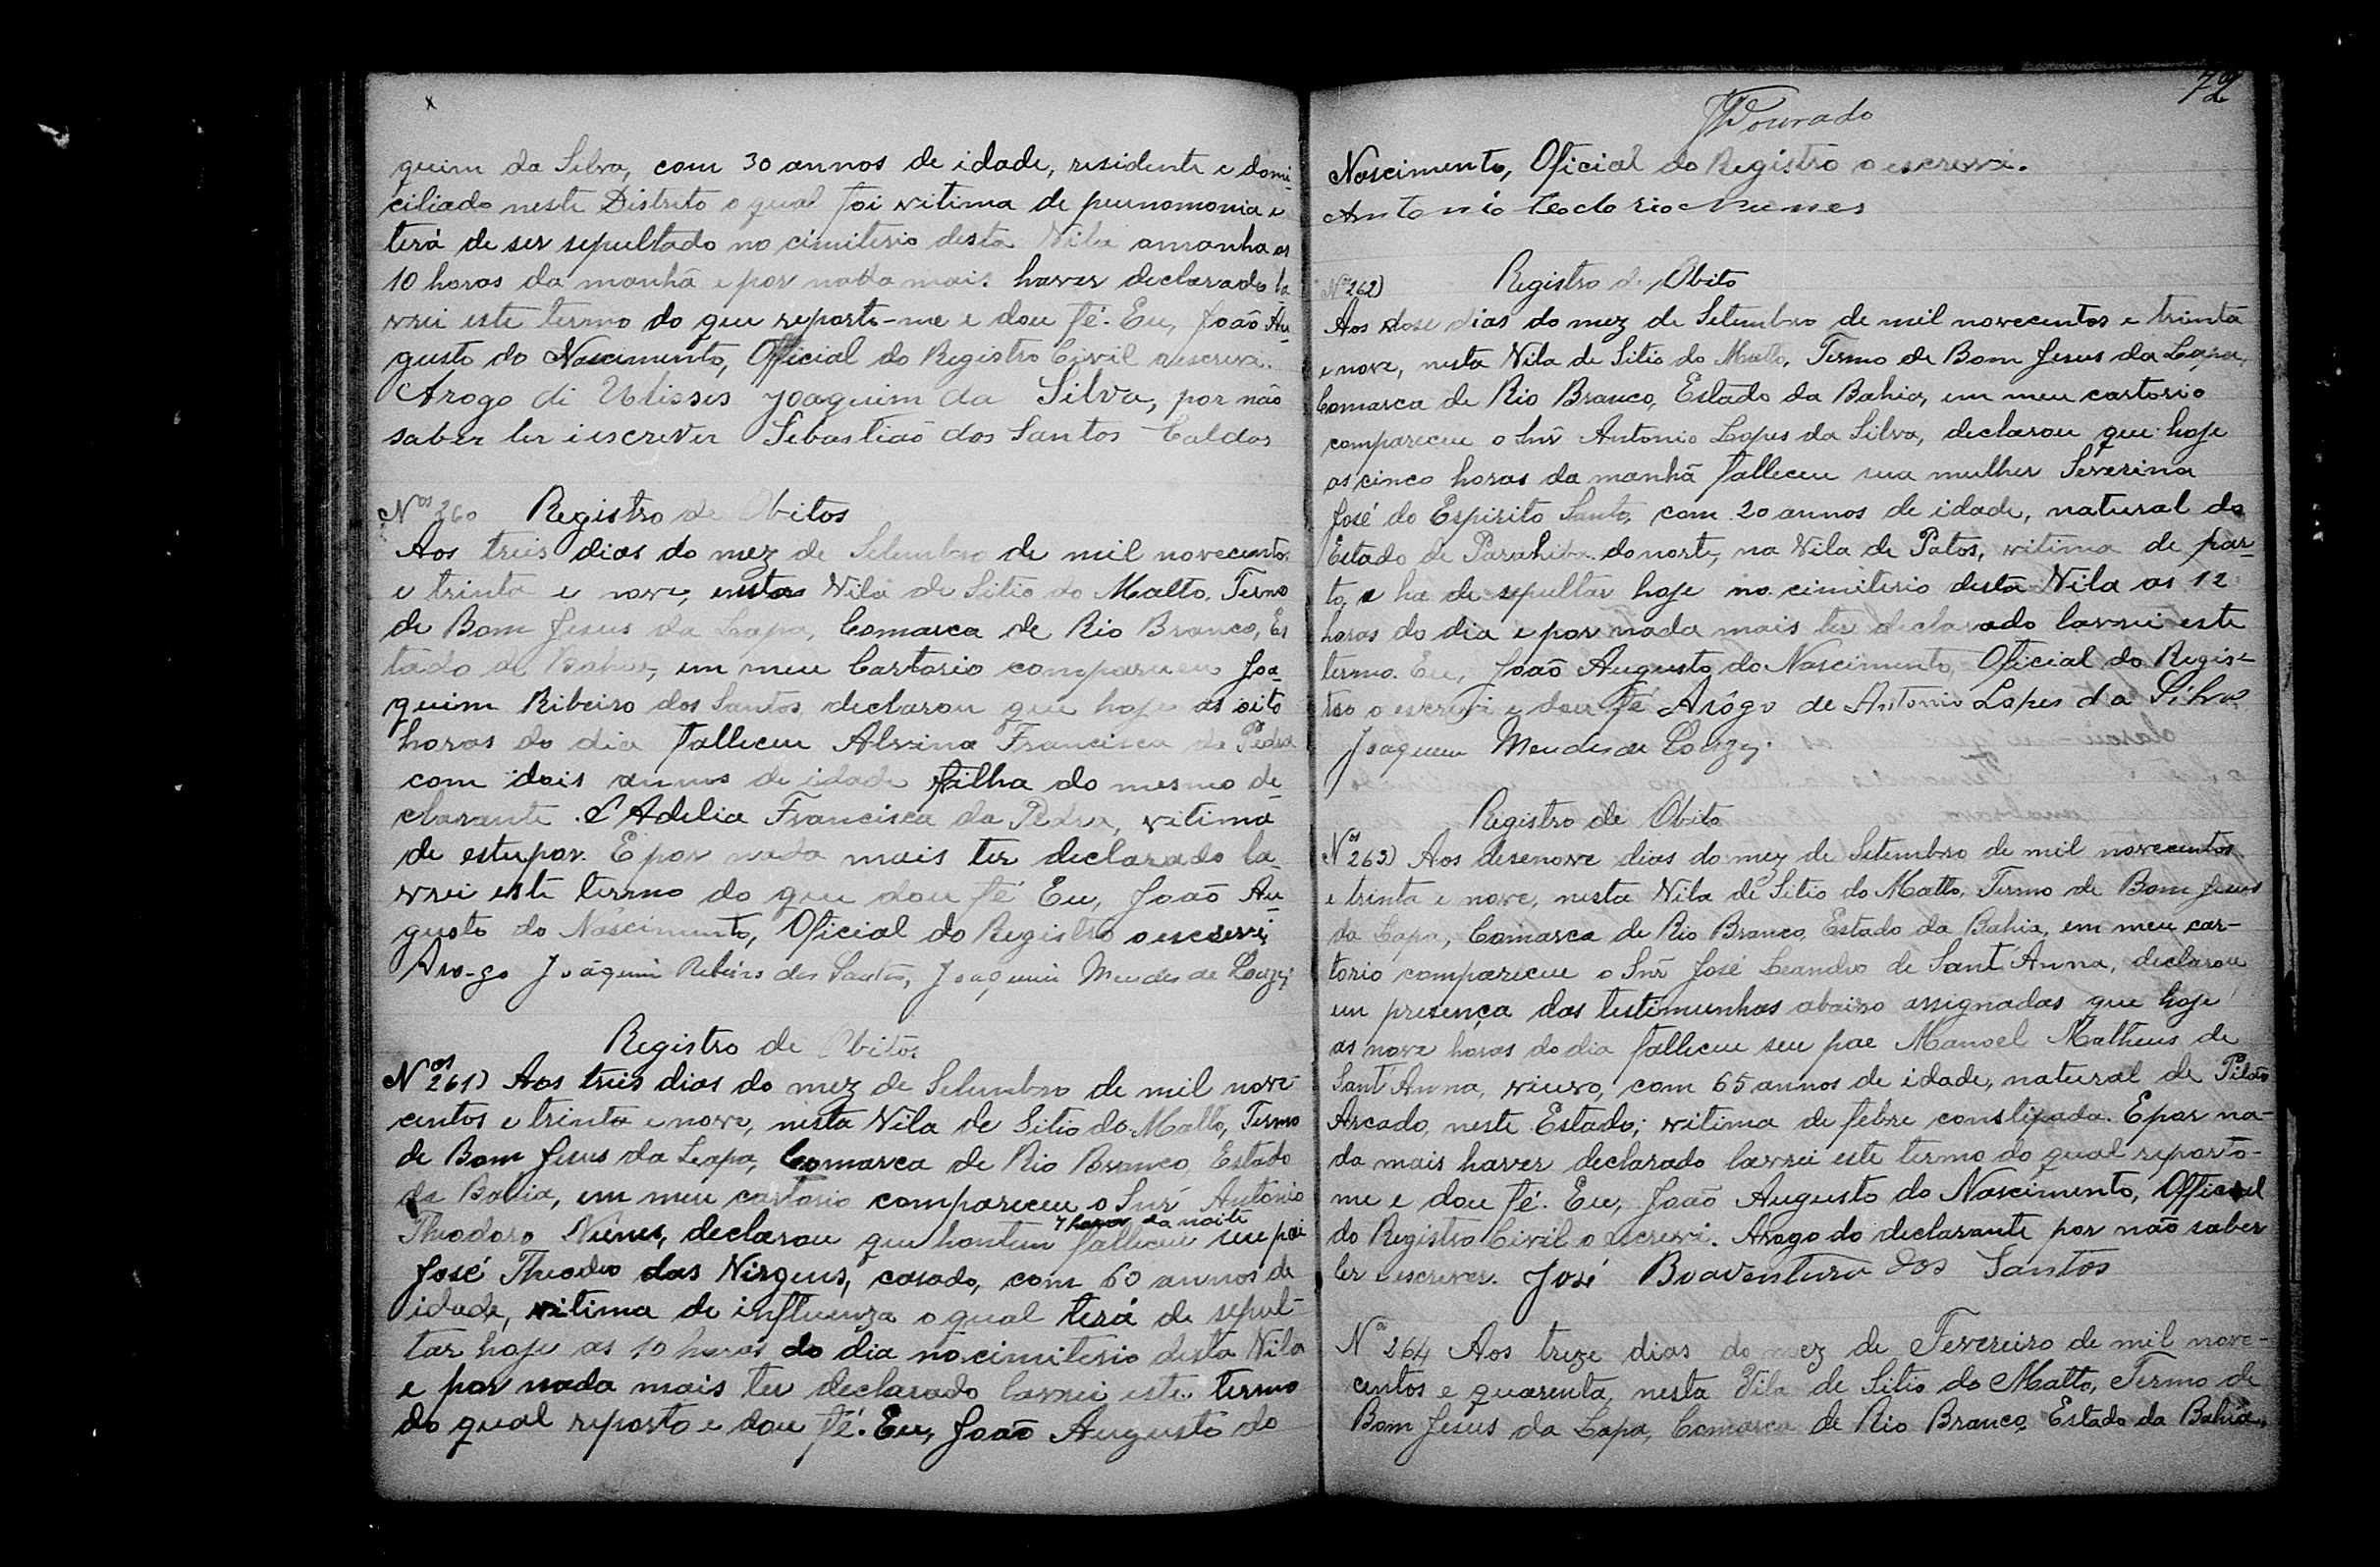 quim da Silva, com 30 annos de idade, residente e domi-
ciliado neste Distrito o qual foi vitima de peunomonia e
terá de ser sepultado no cimiterio desta Vila amanha as
10 horas da manhã e por nada mais haver declarado la
vrei este termo do que reporto-me e dou fé. Eu, João Au-
gusto do Nascimento, Official do Registro Civil o escrevi.
Arogo di Ulisses Joaquim da Silva, por não
saber ler i escrever Sebastião dos Santos Caldas
Nos 260 Registro de Obitos
Aos treis dias do mez de Setembro de mil novecentos
e trinta e nove, nesta Vila de Sitio do Matto, Termo
de Bom Jesus da Lapa, Comarca de Rio Branco, Es
tado da Bahia, em meu Cartorio compareceu Joa-
quim Ribeiro dos Santos, declarou que hoje as oito
horas do dia falleceu Alvina Francisca da Pedra
com dois annos de idade filha do mesmo de-
clarante e Adelia Francisca da Pedra, vitima
de estupor. E por nada mais ter declarado la
vrei este termo do que dou fé Eu, João Au-
gusto do Nascimento, Oficial do Registro o escrevi
Aro-go Joaquim Ribeiro dos Santos, Joaquim Mendes de Souza
Registro de Obitos
Nos 261) Aos treis dias do mez de Setembro de mil nove-
centos e trinta e nove, nesta Vila de Sitio do Matto, Termo
de Bom Jesus da Lapa, Comarca de Rio Branco, Estado
da Bahia, em meu cartorio compareceu o Snr Antonio
7 horas da noite
Theodoro Nunes, declarou que hontem falleceu seu pai
José Theodoro das Virgens, casado, com 60 annos de
idade, vitima de influenza o qual terá de sepul-
tar hoje as 10 horas do dia no cimiterio desta Vila
e por nada mais ter declarado lavrei este termo
do qual reporto e dou fé. Eu, João Augusto do
72
Dourado
Nascimento, Oficial do Registro o escrevi.
Antonio Teodorio Nunes
Nos 262) Registro de Obito
Aos dose dias do mez de Setembro de mil novecentos e trinta
e nove, nesta Vila de Sitio do Matto, Termo de Bom Jesus da Lapa,
Comarca de Rio Branco, Estado da Bahia, em meu cartorio
compareceu o Snr Antonio Lopes da Silva, declarou que hoje
as cinco horas da manhã falleceu sua mulher Severina
José do Espirito Santo, com 20 annos de idade, natural do
Estado de Parahiba do norte, na Vila de Patos, vitima de par-
to, e ha de sepultar hoje no cimiterio desta Vila as 12
horas do dia e por nada mais ter declarado lavrei este
termo. Eu, João Augusto do Nascimento, Oficial do Regis-
tro o escrevi e dou fé Arôgo de Antonio Lopes da Silva
Joaquim Mendes de Souza.
Registro de Obito
Nos 263) Aos desenove dias do mez de Setembro de mil novecentos
e trinta e nove, nesta Vila de Sitio do Matto, Termo de Bom Jesus
da Lapa, Comarca de Rio Branco, Estado da Bahia, em meu car-
torio compareceu o Snr José Leandro de Sant'Anna, declarou
em presença das testimunhas abaixo assignadas que hoje
as nove horas do dia falleceu seu pae Manoel Matheus de
Sant'Anna, viuvo, com 65 annos de idade, natural de Pilão
Arcado, neste Estado; vitima de febre constipada. E por na-
da mais haver declarado lavrei este termo do qual reporto-
me e dou fé. Eu, João Augusto do Nascimento, Official
do Registro Civil o escrevi. Arogo do declarante por não saber
ler e escrever. José Boaventura dos Santos
Nº 264 Aos treze dias do mez de Fevereiro de mil nove-
centos e quarenta, nesta Vila de Sitio do Matto, Termo de
Bom Jesus da Lapa, Comarca de Rio Branco, Estado da Bahia,